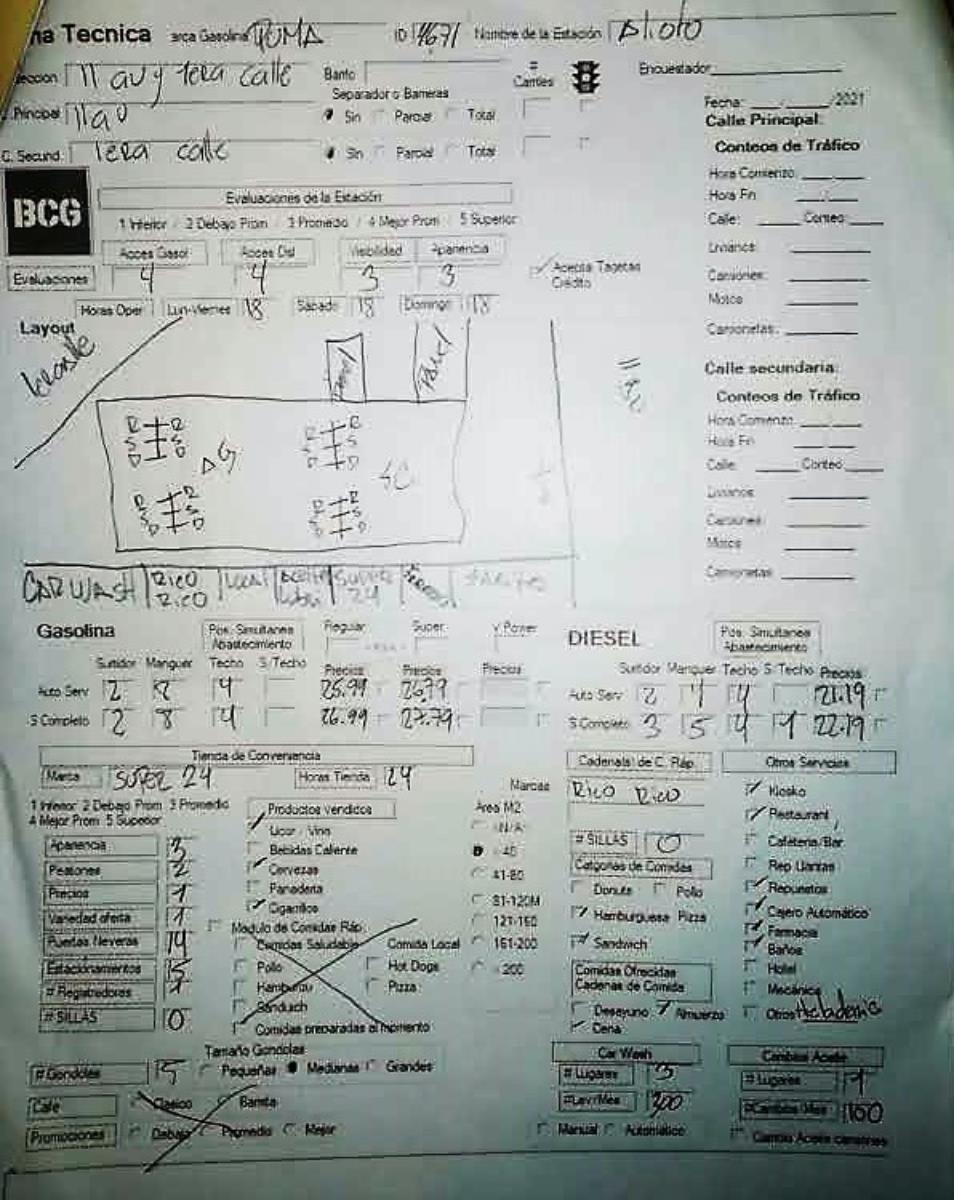 na Tecnica arca Gasolina PUMA ID 4671 Nombre de la Estación
eccion 11 av y 1era calle Barrio # Carriles Encuestador
Separador o Barreras
Principal 11 av Sin Parcial Total
Fecha: / /2021
C. Secund. 1era calle Sin Parcial Total
Calle Principal:
Conteos de Tráfico
Hora Comienzo:
Hora Fin :
Calle: Conteo:
Livianos:
Camiones:
Motos
Camionetas:
Calle secundaria:
Conteos de Tráfico
Hora Comienzo
Hora Fin
Calle: Conteo:
Livianos
Camiones:
Motos
Camionetas:
BCG
Evaluaciones de la Estación
1 Inferior / 2 Debajo Prom / 3 Promedio / 4 Mejor Prom / 5 Superior
Acces Gasol Acces Dsl Visibilidad Apariencia
Evaluaciones 4 4 3 3
Acepta Tagetas Crédito
Horas Oper Lun-Viernes 18 Sábado 18 Domingo 18
Layout
Parcel Parcel
R R R R
S S S S
D D D D
AG SC
R R R R
S S S S
D D D D
CAR WASH RICO RICO Local SUPER 24
Gasolina
Pos. Simultanea Abastecimiento Regular Super V Power
Surtidor Manguer Techo S/Techo Precios Precios Precios
Auto Serv 2 4 25.99 26.79
S Completo 2 8 4 26.99 27.79
DIESEL
Pos. Simultanea Abastecimiento
Surtidor Manguer Techo S/Techo Precios
Auto Serv 2 4 4 21.19
S Completo 3 5 4 1 22.19
Tienda de Conveniencia
Marca SUPER 24 Horas Tienda 24
1 Inferior 2 Debajo Prom 3 Promedio
4 Mejor Prom 5 Superior
Apariencia 3
Peatones 2
Precios 1
Variedad oferta 1
Puertas Neveras 14
Estacionamientos 5
# Registradoras 1
# SILLAS 0
Productos vendidos
Licor - Vino
Bebidas Caliente
Cervezas
Panaderia
Cigarrillos
Modulo de Comidas Ráp.
Comidas Saludable Comida Local
Pollo Hot Dogs
Hamburgu Pizza
Sanduich
Comidas preparadas al momento
Marcas
Area M2
N/A
< 40
41-80
81-120M
121-160
161-200
> 200
Tamaño Gondolas
# Gondolas 5 Pequeñas Medianas Grandes
Cafe Clasico Barista
Promociones Debajo Promedio Mejor
Cadena(s) de C. Ráp.
RICO RICO
# SILLAS 0
Catgorias de Comidas
Donuts Pollo
Hamburguesa Pizza
Sandwich
Comidas Ofrecidas
Cadenas de Comida
Desayuno Almuerzo
Cena
Otros Servicios
Kiosko
Restaurant
Cafeteria/Bar
Rep Llantas
Repuestos
Cajero Automático
Farmacia
Baños
Hotel
Mecánica
Otros Heladeria
Car Wash
# Lugares 3
#Lav/Mes 300
Manual Automático
Cambio Aceite
# Lugares 1
#Cambios Mes 100
Cambio Aceite camiones